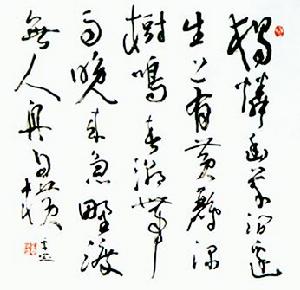 獨憐幽草澗邊
生上有黃鸝深
樹鳴春潮帶
雨晚來急野渡
無人舟自橫